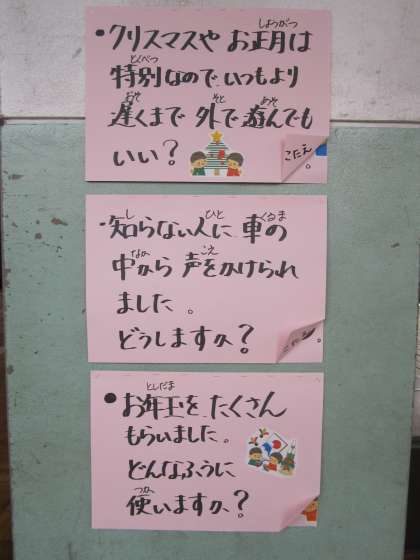 ・クリスマスや お正月は
特別なので いつもより
遅くまで 外で 遊んでも
いい?
こたえ。
・知らない人に 車の
中から 声をかけられ
ました。
どうしますか?
●お年玉を たくさん
もらいました。
どんなふうに
使いますか?